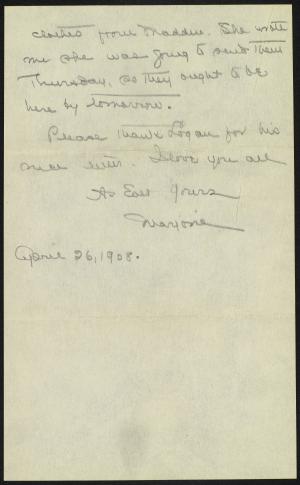 clothes from Maddie. She wrote
me she was going to send them
Thursday, so they ought to be
here by tomorrow.
Please thank Logan for his
nice letter. I love you all
As Ever Yours
Marjorie
April 26, 1908.